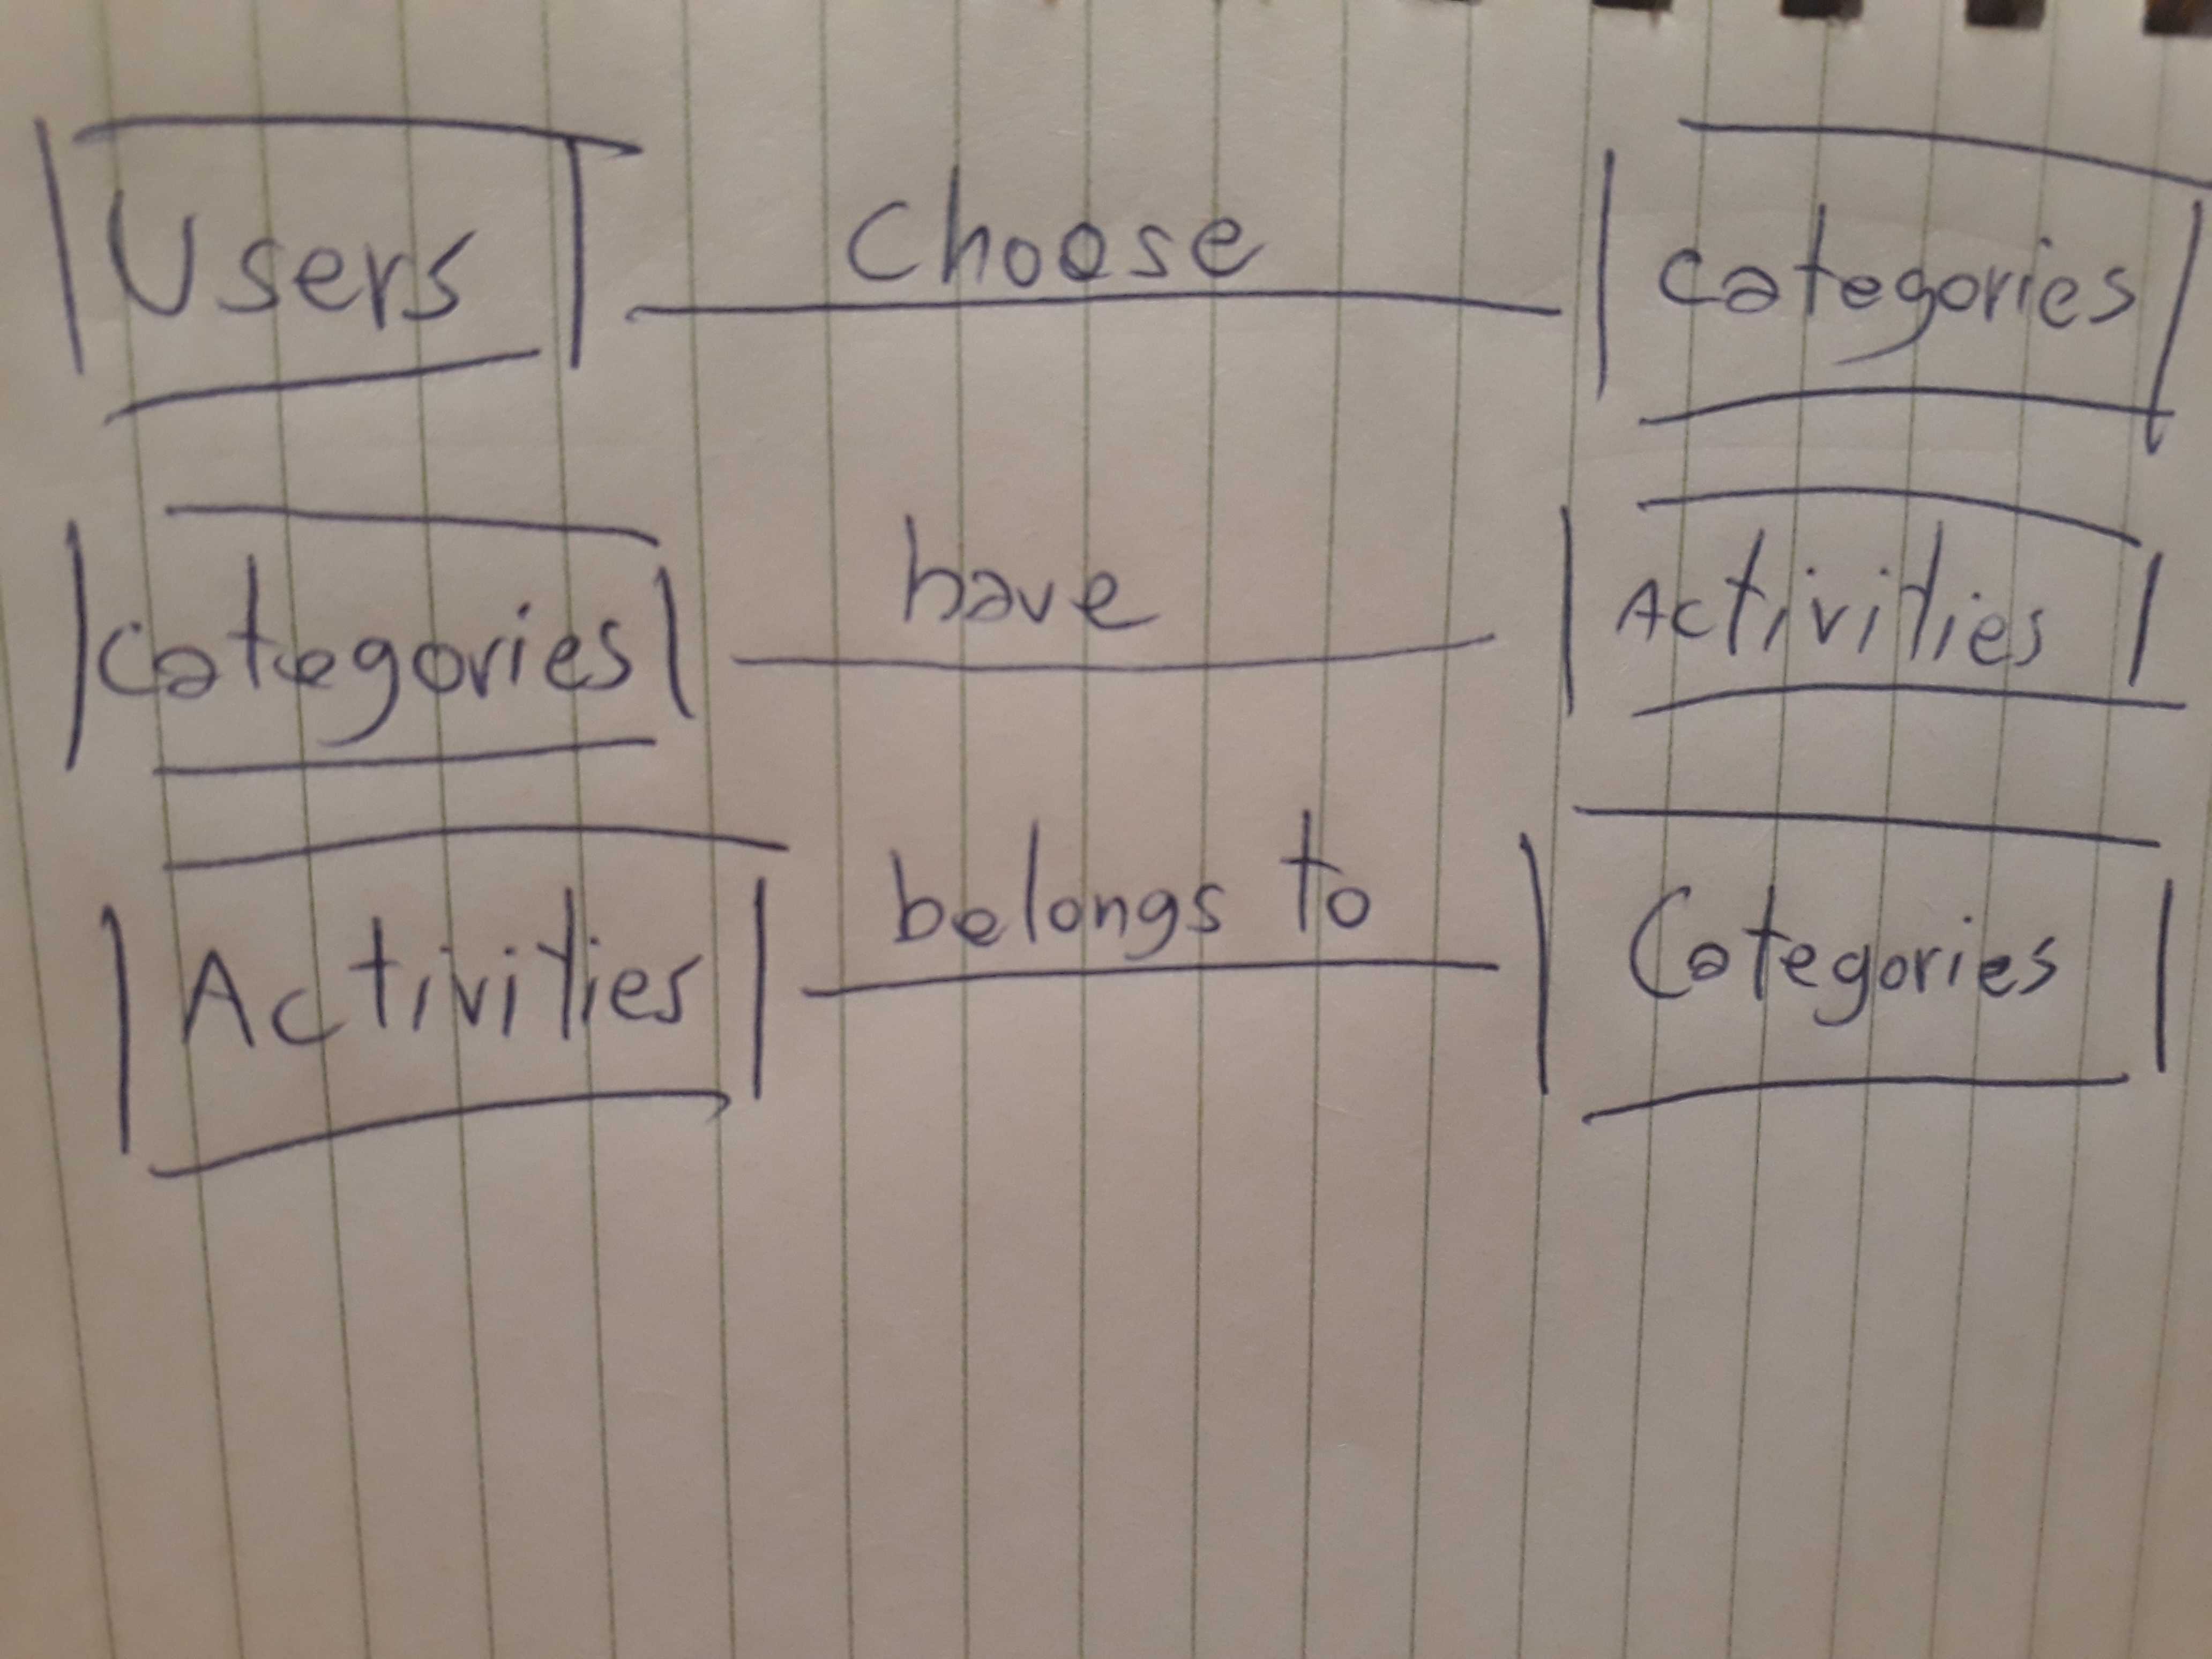 Users choose categories
categories have Activities
Activities belongs to Categories